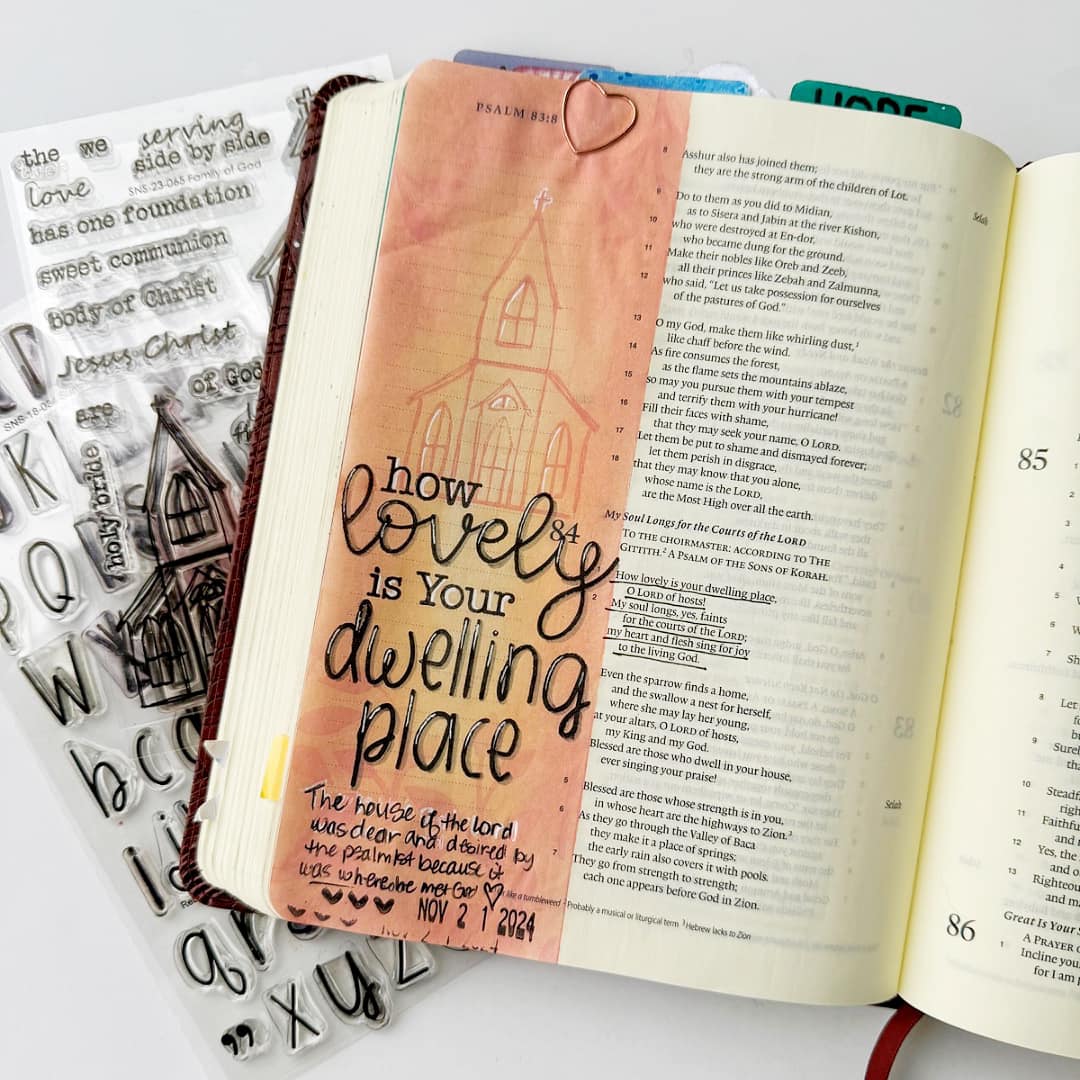 the we serving
side by side
SNS-23-065 Family of God
love
has one foundation
sweet communion
body of Christ
Jesus Christ
of God
are
SNS-18-0
holy bride
K
Q
W
b c a
i
a r
x y z
HOPE
PSALM 83:8
how
lovely
is Your
dwelling
place
The house of the lord
was dear and desired by
the psalmist because it
was where he met God
NOV 2 1 2024
8 Asshur also has joined them;
they are the strong arm of the children of Lot. Selah
9 Do to them as you did to Midian,
as to Sisera and Jabin at the river Kishon,
10 who were destroyed at En-dor,
who became dung for the ground.
11 Make their nobles like Oreb and Zeeb,
all their princes like Zebah and Zalmunna,
12 who said, “Let us take possession for ourselves
of the pastures of God.”
13 O my God, make them like whirling dust,¹
like chaff before the wind.
14 As fire consumes the forest,
as the flame sets the mountains ablaze,
15 so may you pursue them with your tempest
and terrify them with your hurricane!
16 Fill their faces with shame,
that they may seek your name, O LORD.
17 Let them be put to shame and dismayed forever;
let them perish in disgrace,
18 that they may know that you alone,
whose name is the LORD,
are the Most High over all the earth.
My Soul Longs for the Courts of the LORD
84 TO THE CHOIRMASTER: ACCORDING TO THE
GITTITH.² A PSALM OF THE SONS OF KORAH.
How lovely is your dwelling place,
O LORD of hosts!
2 My soul longs, yes, faints
for the courts of the LORD;
my heart and flesh sing for joy
to the living God.
Even the sparrow finds a home,
and the swallow a nest for herself,
where she may lay her young,
at your altars, O LORD of hosts,
my King and my God.
Blessed are those who dwell in your house,
ever singing your praise! Selah
5 Blessed are those whose strength is in you,
in whose heart are the highways to Zion.³
6 As they go through the Valley of Baca
they make it a place of springs;
the early rain also covers it with pools.
7 They go from strength to strength;
each one appears before God in Zion.
like a tumbleweed ² Probably a musical or liturgical term ³ Hebrew lacks to Zion
85
1
2
3
4
5
6
7 Sh
8 Let
9 Surel
tha
10 Steadf
righ
11 Faithfu
and
12 Yes, the
and o
13 Righteou
and ma
Great Is Your
86 A PRAYER O
1 Incline you
for I am p